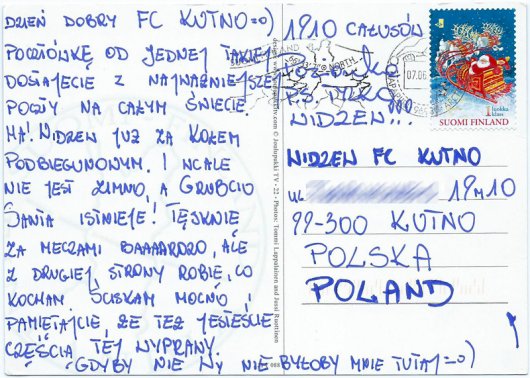 DZIEŃ DOBRY FC KUTNO =o)
POCZTÓWKĘ OD JEDNEJ TAKIEJ
DOSTAJECIE Z NAJWAŻNIEJSZEJ
POCZTY NA CAŁYM ŚWIECIE.
HA! NIDZEN JUŻ ZA KOŁEM
PODBIEGUNOWYM. I WCALE
NIE JEST ZIMNO, A GRUBCIO
SANTA ISTNIEJE! TĘSKNIĘ
ZA MECZAMI BAAAARDZO, ALE
Z DRUGIEJ STRONY ROBIĘ, CO
KOCHAM. ŚCISKAM MOCNO I
PAMIĘTAJCIE, ŻE TEŻ JESTEŚCIE
CZĘŚCIĄ TEJ WYPRAWY.
GDYBY NIE WY NIE BYŁOBY MNIE TUTAJ =o)
© Joulupukki TV - 22 - Photos: Tommi Lappalainen and Jussi Ruottinen
1910 CAŁUSÓW
P.S. TYLKO
WIDZEW...
07.06
1 luokka
klass
SUOMI FINLAND
WIDZEW FC KUTNO
UL 19M10
99-300 KUTNO
POLSKA
POLAND